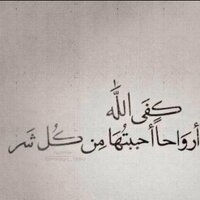 كَفَى اللَّه
أروَاحاً أحببتُهَا مِن كُل شَر